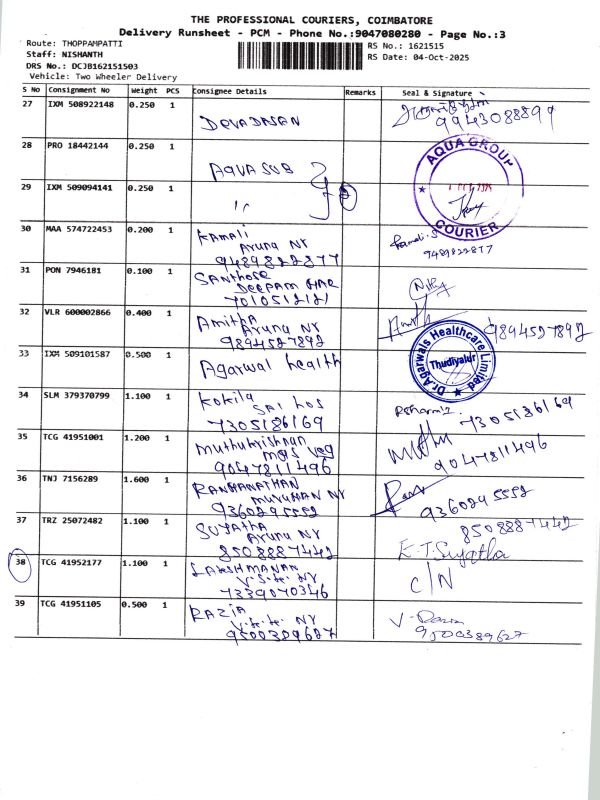 THE PROFESSIONAL COURIERS, COIMBATORE
Delivery Runsheet - PCM - Phone No.:9047080280 - Page No.:3
Route: THOPPAMPATTI
Staff: NISHANTH
DRS No.: DCJB162151503
Vehicle: Two Wheeler Delivery
RS No.: 1621515
RS Date: 04-Oct-2025
S No Consignment No Weight PCS Consignee Details Remarks Seal & Signature
27 IXM 508922148 0.250 1
DEVADASAN
9943088899
28 PRO 18442144 0.250 1
AQUA SUB
AQUA GROUP
COURIER
29 IXM 509094141 0.250 1
30 MAA 574722453 0.200 1
Kamali
Aruna NY
9489822877
Kamali.S
9489822877
31 PON 7946181 0.100 1
Santhose
DEEPAM
7010512121
32 VLR 600002866 0.400 1
Amitha
Aruna NY
9894527892
9894527892
33 IXM 509101587 0.500 1
Agarwal health
Dr.Agarwals Healthcare Limited
Thudiyalur
34 SLM 379370799 1.100 1
Kokila
SAI hos
7305186169
7305186169
35 TCG 41951001 1.200 1
Muthukrishnan
9047811496
9047811496
36 TNJ 7156289 1.600 1
RANGANATHAN
MURUHAN NY
9360295552
9360295552
37 TRZ 25072482 1.100 1
SUJATHA
Aruna NY
8508887442
8508887442
K.T.Sujatha
38 TCG 41952177 1.100 1
LAKSHMANAN
7339070346
C/N
39 TCG 41951105 0.500 1
RAZIA
9500389627
9500389627